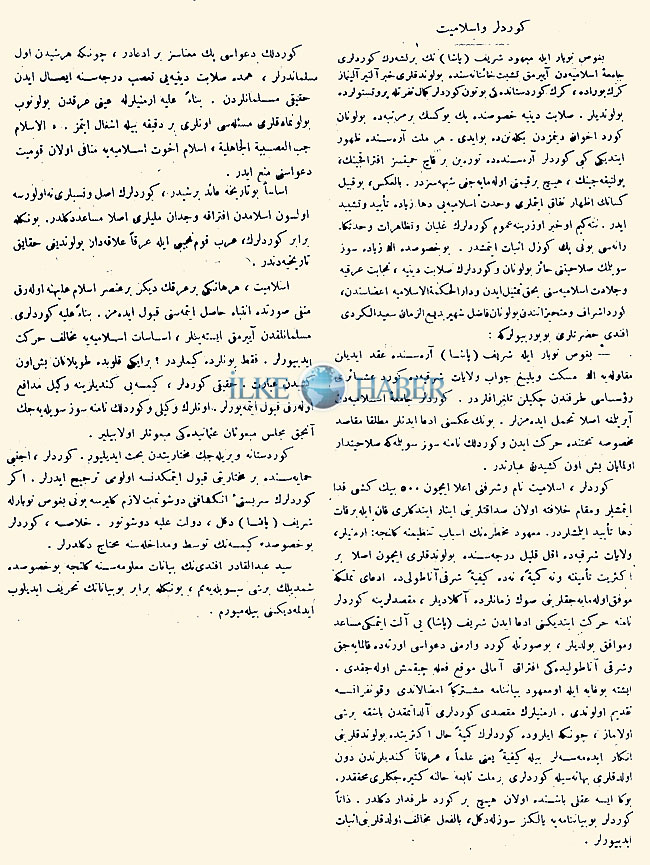 كوردلر واسلاميت
بغوس نوبار ايله معهود شريف (پاشا) نك برلشه‌رك كوردلرى
جامعهٔ اسلاميه‌دن آييرمق تشبث خائنانه‌سنده بولوندقلرى خبر آلنير آلنماز
كرك بوراده ، كرك كوردستانده كى بوتون كوردلر كمال نفرتله پروتستولرده
بولنديلر . صلابت دينيه خصوصنده پك يوكسك بر مرتبه‌ده بولونان
كورد اخوان دينمزدن بكله‌نن ده بو ايدى . هر ملت آره‌سنده ظهور
ايتديكى كبى كوردلر آره‌سنده‌ده توره‌ين بر قاچ حميتسز افتراقجينك،
پوليتقه‌جينك ، هيچ بر قيمتى اوله‌مايه‌جغى شبهه‌سزدر . بالعكس ، بوقبيل
كسانك اظهار نفاق ايتملرى وحدت اسلاميه‌يى دها زياده تأييد وتشييد
ايدر . نته‌كيم او خبر اوزرينه عموم كوردلرك غليان وتظاهرات وحدتكا.
رانه‌سى بونى پك كوزل اثبات ايتمشدر . بوخصوصده اك زياده سوز
سويلمك صلاحيتنى حائز بولونان وكوردلرك صلابت دينيه ، نجابت عرقيه
وجلادت اسلاميه‌سنى بحق تمثيل ايدن ودار الحكمة الاسلاميه اعضاسندن،
كورد اشراف ومتحيزانندن بولونان فاضل شهير بديع الزمان سعيد الكردى
افندى حضرتلرى بويوربيورلركه :
— بغوس نوبار ايله شريف (پاشا) آره‌سنده عقد ايديلن
مقاوله‌يه اك مسكت وبليغ جواب ولايات شرقيه‌ده كورد عشائرى
رؤساسى طرفندن چكيلن تلغرافلردر . كوردلر جامعهٔ اسلاميه‌دن
آيرلمغه اصلا تحمل ايده‌مزلر . بونك عكسنى ادعا ايدنلر مطلقا مقاصد
مخصوصه تحتنده حركت ايدن وكوردلك نامنه سوز سويلمكه صلاحيتدار
اولمايان بش اون كشيدن عبارتدر .
كوردلر ، اسلاميت نام وشرفنى اعلا ايچون ٥٠٠ بيك كشى فدا
ايتمشلر ومقام خلافته اولان صداقتلرينى ايثار ايتدكلرى قان ايله برقات
دها تأييد ايلمشلردر. معهود مخطره‌نك اسباب تنظيمنه كلنجه : ارمنيلر،
ولايات شرقيه‌ده اقل قليل درجه‌سنده بولوندقلرى ايچون اصلا بر
اكثريت تأمينه ونه كميةً ، نه‌ده كيفيةً شرقى آناطولى‌ده ادعاى تملكه
موفق اوله‌مايه‌جقلرينى صوك زمانلرده آكلاديلر ، مقصدلرينه كوردلر
نامنه حركت ايتديكنى ادعا ايدن شريف (پاشا) يى آلت ايتمكى مساعد
وموافق بولديلر ، بوصورتله كورد وارمنى دعواسى اورته‌ده قالمايه‌جق
وشرقى آناطوليده‌كى افتراق آمالى موقع فعله چيقمش اوله‌جقدى .
ايشته بو غايه ايله او معهود بياننامه مشتركاً امضالاندى وقونفرانسه
تقديم اولوندى . ارمنيلرك مقصدى كوردلرى آلداتمقدن باشقه برشى
اولاماز ، چونكه ايلروده كوردلرك كميةً حال اكثريتده بولوندقلرينى
انكار ايده‌مسه‌لر بيله كيفيةً يعنى علماً ، عرفاناً كنديلرندن دون
اولدقلرى بهانه‌سيله كوردلرى بر ملت تابعه حالنه كتيره‌جكلرى محققدر.
بوكا ايسه عقلى باشنده اولان هيچ بر كورد طرفدار دكلدر . ذاتاً
كوردلر بو بياننامه‌يه يالكز سوزله‌دكل، بالفعل مخالف اولدقلرينى اثبات
ايديبيورلر .
كوردلك دعواسى پك معناسز بر ادعادر ، چونكه هرشيدن اول
مسلماندرلر ، همده صلابت دينيه‌يى تعصب درجه‌سنه ايصال ايدن
حقيقى مسلمانلردن . بناءً عليه ارمنيلرله عينى عرقدن بولونوب
بولونمادقلرى مسئله‌سى اونلرى بر دقيقه بيله اشغال ايتمز . ه الاسلام
جب العصبية الجاهلية ، اسلام اخوت اسلاميه‌يه منافى اولان قوميت
دعواسنى منع ايدر .
اساساً بو تاريخه عائد برشيدر ، كوردلرك اصل ونسبلرى نه‌اولورسه
اولسون اسلامدن افتراقه وجدان مليلرى اصلا مساعد دكلدر. بونكله
برابر كوردلرك، عرب قوم نجيبى ايله عرقاً علاقه‌دار بولونديغى حقايق
تاريخيه‌دندر .
اسلاميت ، هرهانكى بر عرقك ديكر بر عنصر اسلام عليهنه اوله‌رق
منفى صورتده انتباه حاصل ايتمه‌سنى قبول ايده‌مز . بناءً عليه كوردلرى
مسلمانلقدن آييرمق ايسته‌ينلر ، اساسات اسلاميه‌يه مخالف حركت
ايديبيورلر . فقط بونلرده كيملردر ؟ برايكى قلوبده طوپلانان بش اون
كشيدن عبارت . حقيقى كوردلر ، كيمسه‌يى كنديلرينه وكيل مدافع
اوله‌رق قبول ايتمه‌يورلر . اونلرك وكيلى وكوردلك نامنه سوز سويله‌يه‌جك
آنجق مجلس مبعوثان عثمانيده‌كى مبعوثلر اولابيلير .
كوردستانه ويريله‌جك مختاريتدن بحث ايديليور. كوردلر ، اجنبى
حمايه‌سنده بر مختاريتى قبول ايتمكدنسه اولومى ترجيح ايدرلر . اكر
كوردلرك سربستىٔ انكشافنى دوشونمك لازم كليرسه بونى بغوس نوبارله
شريف (پاشا) دكل ، دولت عليه دوشونور . خلاصه ، كوردلر
بوخصوصده كيمسه‌نك توسط ومداخله‌سنه محتاج دكلدرلر .
سيد عبدالقادر افندى‌نك بيانات معلومه‌سنه كلنجه بوخصوصده
شمديلك برشى سويله‌يه‌مم ، بونكله برابر بو بياناتك تحريف ايديلوب
ايدلمه‌ديكنى بيله‌ميورم .
İLKE HABER